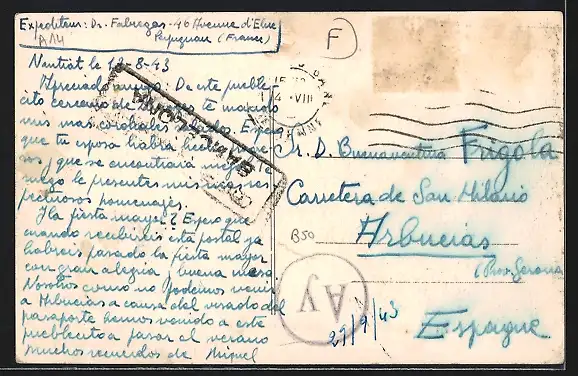 Expediteur: Dr. Fabregas - 46 Avenue d'Elne
Perpignan (France)
A 14
F
Nantiat le 12-8-43
Apreciado amigo: De este puble-
cito cercano de te mando
mis mas cordiales
que tu esposa habra
sos, y que se encontrará
ruego le presentes mis mas res-
petuosos homenages.
Y la fiesta mayor? Espero que
cuando recibireis esta postal ya
habreis pasado la fiesta mayor
con gran alegria y buena mesa
Nosotros como no podemos venir
a Arbucias a causa del visado del
pasaporte hemos venido a este
pueblecito a pasar el verano
Muchos recuerdos de Miquel
VIII
CENSURA
BARCELONA
Sr. D. Buenaventura Frigola
Carretera de San Hilario
Arbucias
(Prov. Gerona
Espagne
B50
Ay
29/9/43